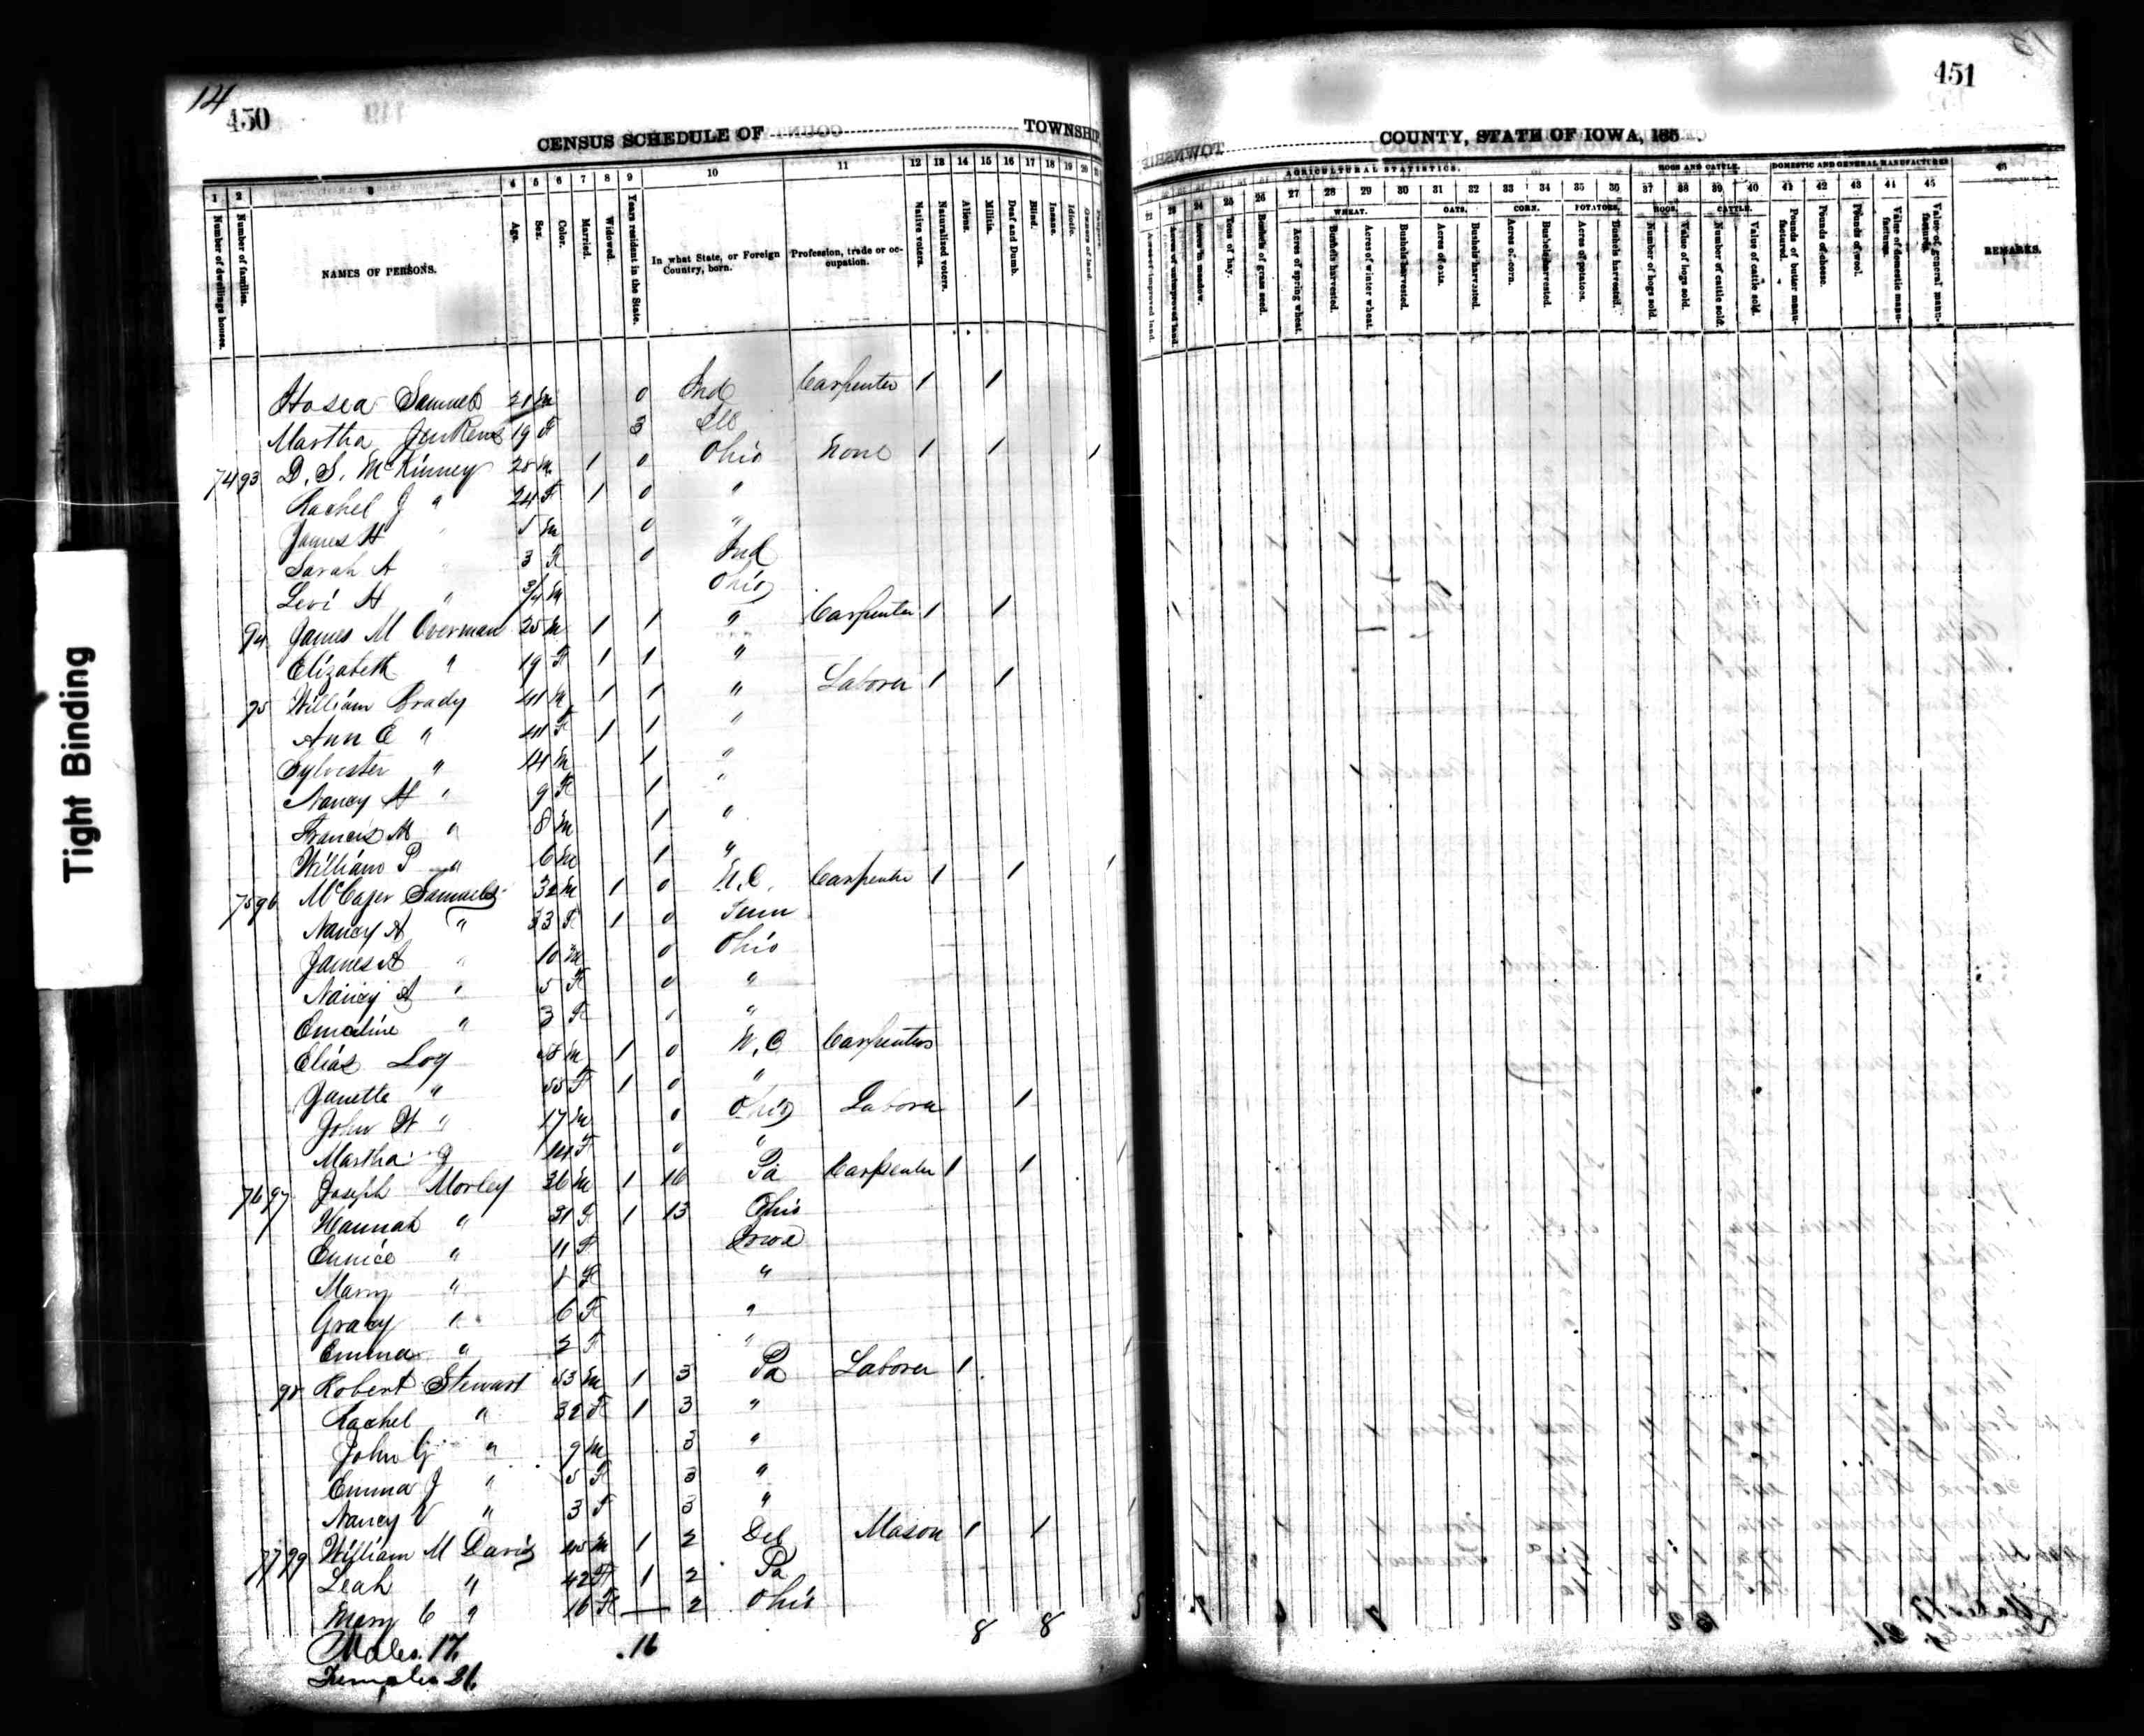 14
450
CENSUS SCHEDULE OF TOWNSHIP
1 2 3 4 5 6 7 8 9 10 11 12 13 14 15 16 17 18 19 20
Number of dwellings houses.
Number of families.
NAMES OF PERSONS.
Age.
Sex.
Color.
Married.
Widowed.
Years resident in the State.
In what State, or Foreign Country, born.
Profession, trade or occupation.
Native voters.
Naturalized voters.
Aliens.
Militia.
Deaf and Dumb.
Blind.
Insane.
Idiotic.
Owners of land.
Hosea Samuels 21 M 0 Ind Carpenter 1 1
Martha Jenkens 19 F 3 Ill
74 93 D. S. McKinney 28 M 1 0 Ohio None 1 1 1
Rachel J " 24 F 1 0 "
James H 5 M 0 "
Sarah A " 3 F 0 Ind
Levi H " 3/4 M Ohio
94 James M Overman 25 M 1 1 " Carpenter 1 1
Elizabeth " 19 F 1 1 "
95 William Brady 41 M 1 1 " Laborer 1 1
Ann E " 41 F 1 1 "
Sylvester " 14 M 1 "
Nancy H " 9 F 1 "
Francis M " 8 M 1 "
William P " 6 M 1 "
75 96 McCager Samuels 32 M 1 0 N.C. Carpenter 1 1 1
Nancy A " 33 F 1 0 Tenn
James A " 10 M 0 Ohio
Nancy A " 5 F 0 "
Emaline " 3 F "
Elias Loy 58 M 1 0 N.C. Carpenter
Janette " 55 F 1 0 "
John W " 17 M 0 Ohio Laborer 1
Martha J 14 F 0 "
76 97 Joseph Morley 36 M 1 16 Pa Carpenter 1 1 1
Hannah " 31 F 1 13 Ohio
Eunice " 11 F Iowa
Mary " 8 F "
Gracy " 6 F "
Emma " 2 F "
98 Robert Stewart 53 M 1 3 Pa Laborer 1 1
Rachel " 32 F 1 3 "
John G " 9 M 3 "
Emma J " 5 F 3 "
Nancy V " 3 F 3 "
77 99 William M Davis 45 M 1 2 Del Mason 1 1 1
Leah " 42 F 1 2 Pa
Mary C " 16 F 2 Ohio
Males. 17. 16 8 8
Females 21.
Tight Binding
451
COUNTY, STATE OF IOWA, 185 .
AGRICULTURAL STATISTICS.
HOGS AND CATTLE.
DOMESTIC AND GENERAL MANUFACTURES
21 23 24 25 26 27 28 29 30 31 32 33 34 35 36 37 38 39 40 41 42 43 44 45 46
WHEAT. OATS. CORN. POTATOES. HOGS. CATTLE.
Acres of improved land.
Acres of unimproved land.
Acres in meadow.
Tons of hay.
Bushels of grass seed.
Acres of spring wheat.
Bushels harvested.
Acres of winter wheat.
Bushels harvested.
Acres of oats.
Bushels harvested.
Acres of corn.
Bushels harvested.
Acres of potatoes.
Bushels harvested.
Number of hogs sold.
Value of hogs sold.
Number of cattle sold.
Value of cattle sold.
Pounds of butter manufactured.
Pounds of cheese.
Pounds of wool.
Value of domestic manufactures.
Value of general manufactures.
REMARKS.